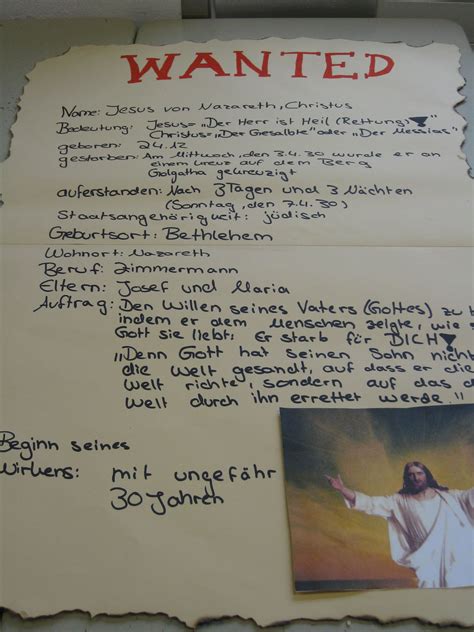 WANTED
Name: Jesus von Nazareth, Christus
Bedeutung: Jesus= „Der Herr ist Heil (Rettung)"
Christus= „Der Gesalbte" oder „Der Messias"
geboren: 24.12
gestorben: Am Mittwoch, den 3.4.30 wurde er an
einem Kreuz auf dem Berg
Golgatha gekreuzigt
auferstanden: Nach 3 Tagen und 3 Nächten
(Sonntag, den 7.4.30)
Staatsangehörigkeit: jüdisch
Geburtsort: Bethlehem
Wohnort: Nazareth
Beruf: Zimmermann
Eltern: Josef und Maria
Auftrag: Den Willen seines Vaters (Gottes) zu
indem er dem Menschen zeigte, wie
Gott sie liebt: Er starb für DICH!
„Denn Gott hat seinen Sohn nicht
die Welt gesandt, auf das er die
Welt richte, sondern auf das d
Welt durch ihn errettet werde."
Beginn seines
Wirkens: mit ungefähr
30 Jahren